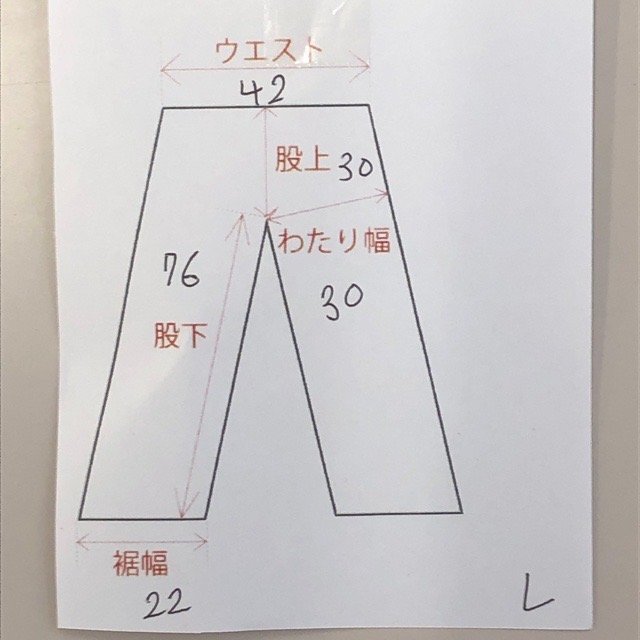 ウエスト
42
股上 30
わたり幅
30
76
股下
裾幅
22
L